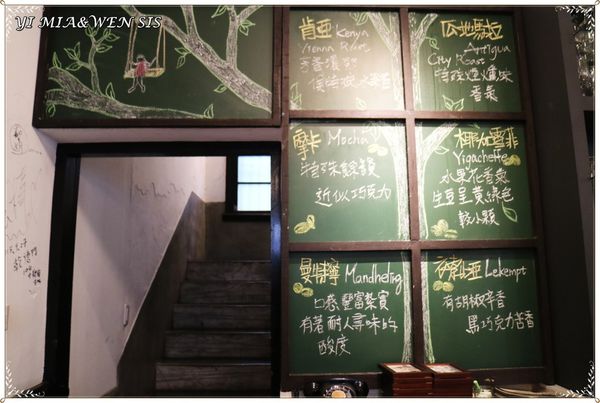 YI MIA&WEN SIS
肯亞 Kenya
Vienna Roast
瓜地馬拉
Antigua
City Roast
特殊煙燻味
香氣
摩卡 Mocha
特殊餘韻
近似巧克力
耶加雪菲
Yigacheffe
水果花香氣
生豆呈黃綠色
較小顆
曼特寧 Mandheling
口感豐富紮實
有著耐人尋味的
酸度
Lekempt
有胡椒辛香
黑巧克力苦香